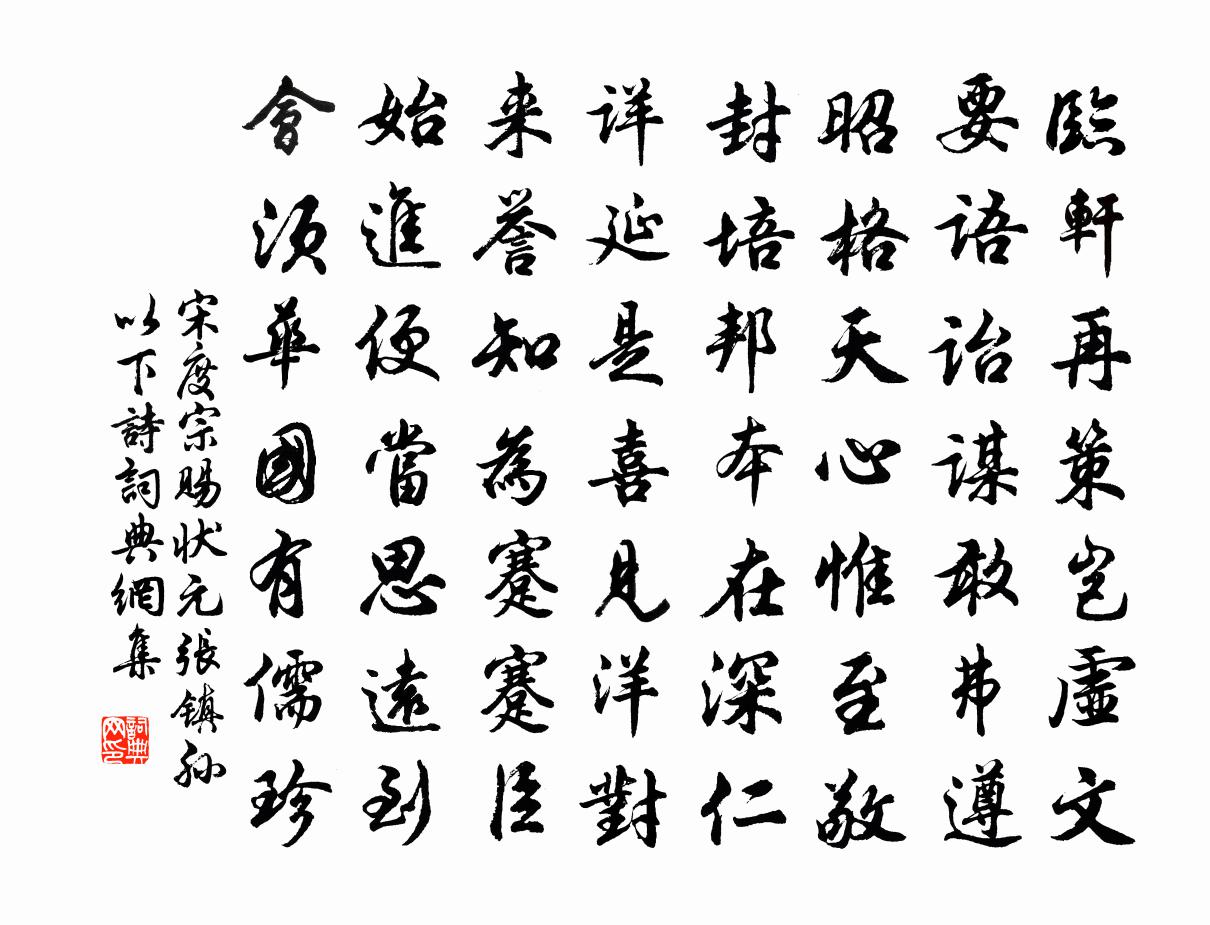 臨軒再策豈虛文
要語詒謀敢弗遵
昭格天心惟至敬
封培邦本在深仁
详延是喜見洋對
来誉知為蹇蹇臣
始進便當思遠到
會须華國有儒珍
宋度宗賜状元張鎮孙
以下詩詞典網集
詞典网印